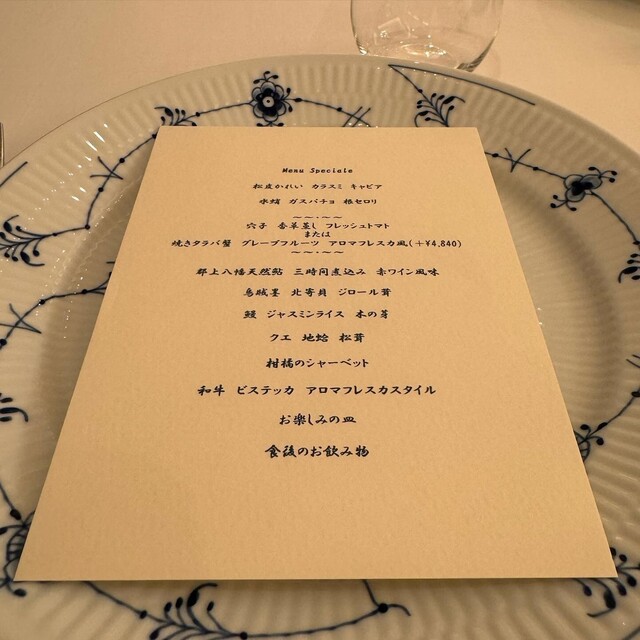 Menu Speciale
松皮かれい カラスミ キャビア
水蛸 ガスパチョ 根セロリ
～～・～～
穴子 香草蒸し フレッシュトマト
または
焼きタラバ蟹 グレープフルーツ アロマフレスカ風(+¥4,840)
～～・～～
郡上八幡天然鮎 三時間煮込み 赤ワイン風味
烏賊墨 北寄貝 ジロール茸
鰻 ジャスミンライス 木の芽
クエ 地蛤 松茸
柑橘のシャーベット
和牛 ビステッカ アロマフレスカスタイル
お楽しみの皿
食後のお飲み物